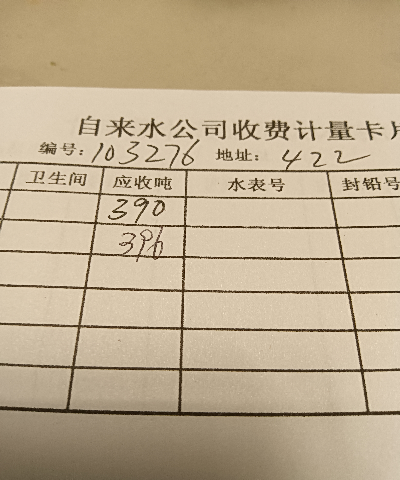 自来水公司收费计量卡片
编号：103276 地址：422
卫生间 应收吨 水表号 封铅号
390
396